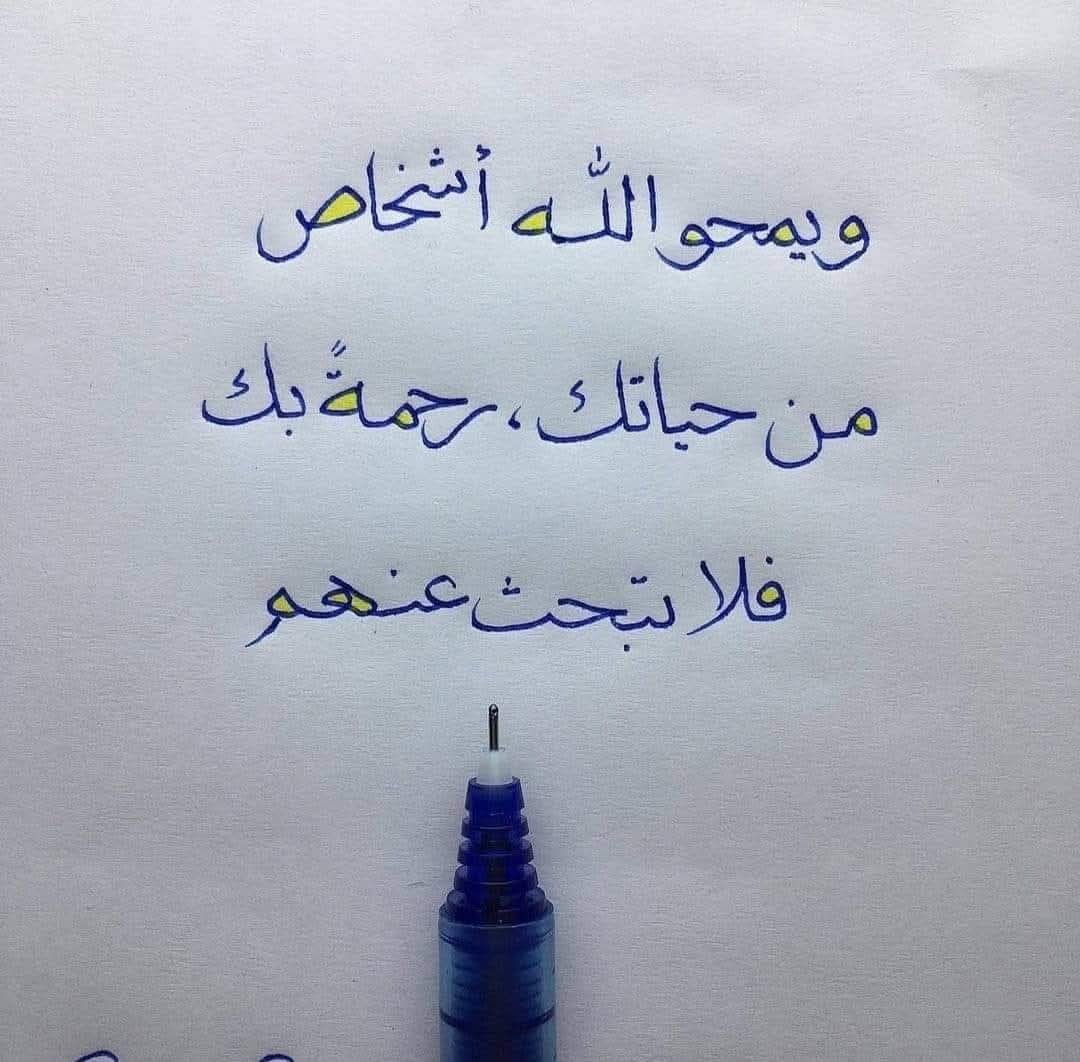 ويمحو الله أشخاص
من حياتك، رحمةً بك
فلا تبحث عنهم